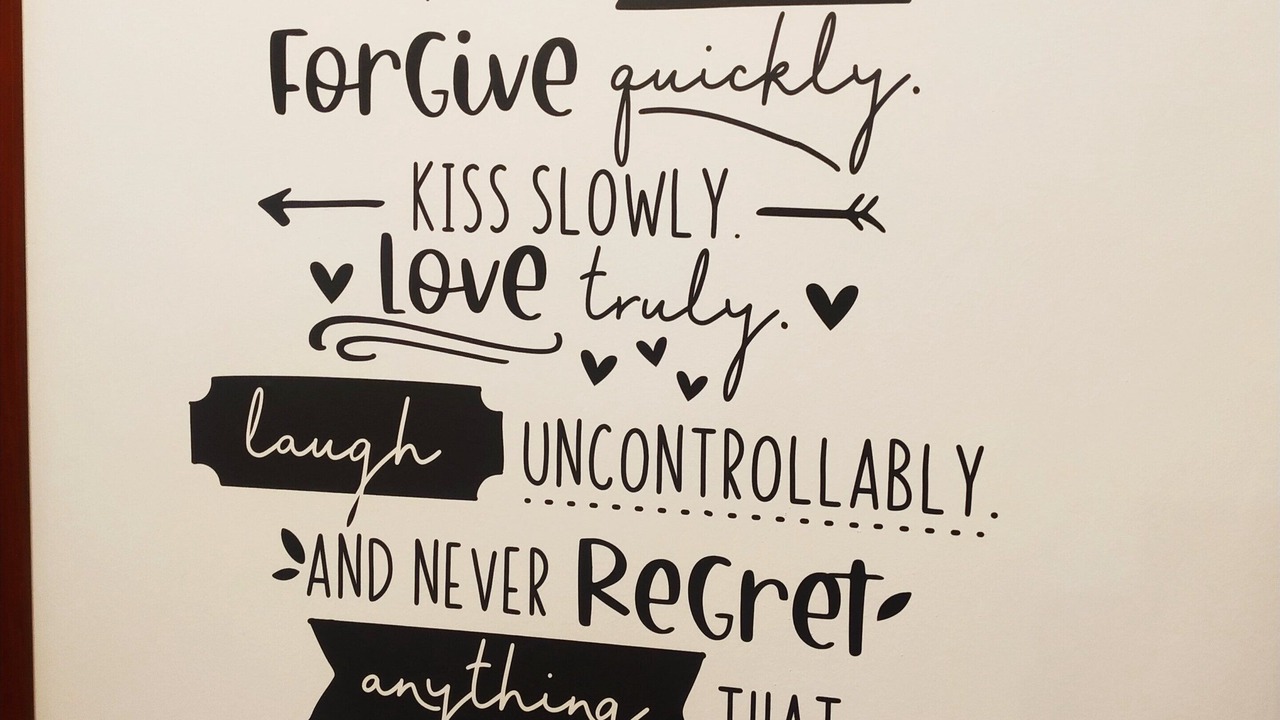 ForGive quickly.
KISS SLOWLY.
Love truly.
laugh UNCONTROLLABLY.
AND NEVER ReGret
anything THAT